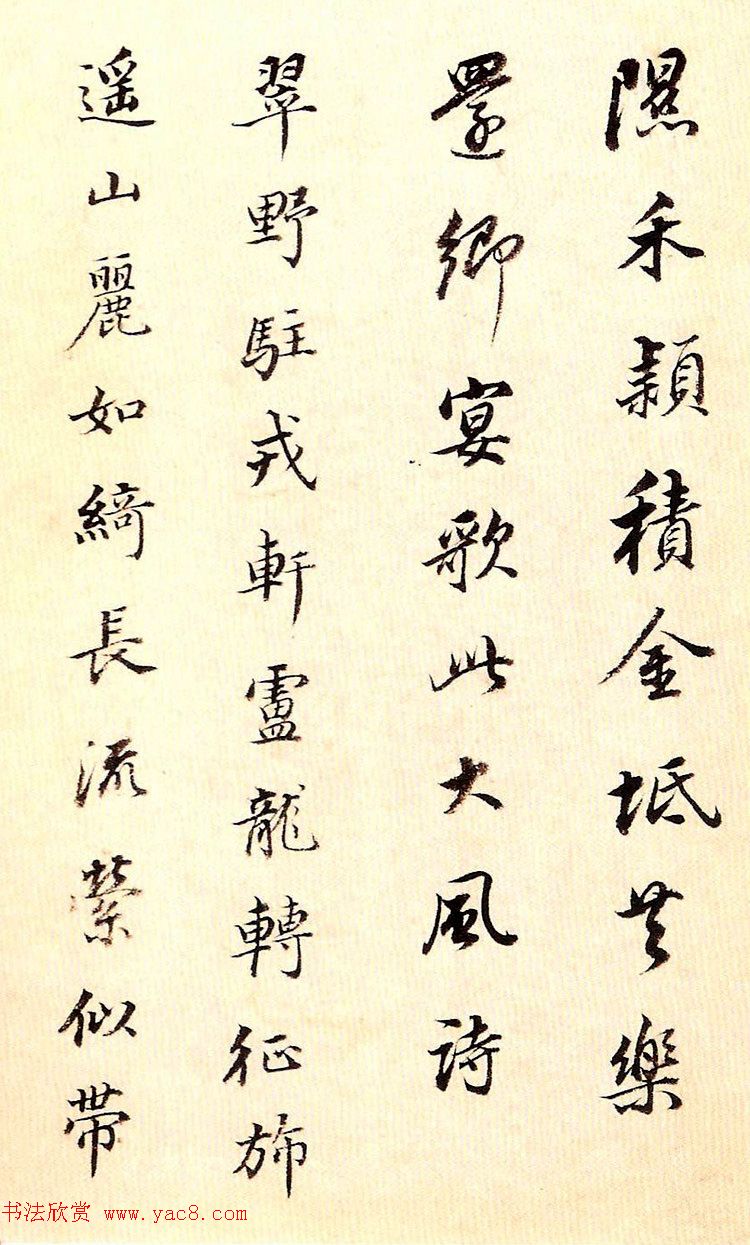 隰禾穎積金坻共樂
還鄉宴歌此大風詩
翠野駐戎軒盧龍轉征斾
遥山麗如綺長流縈似帶
书法欣赏 www.yac8.com